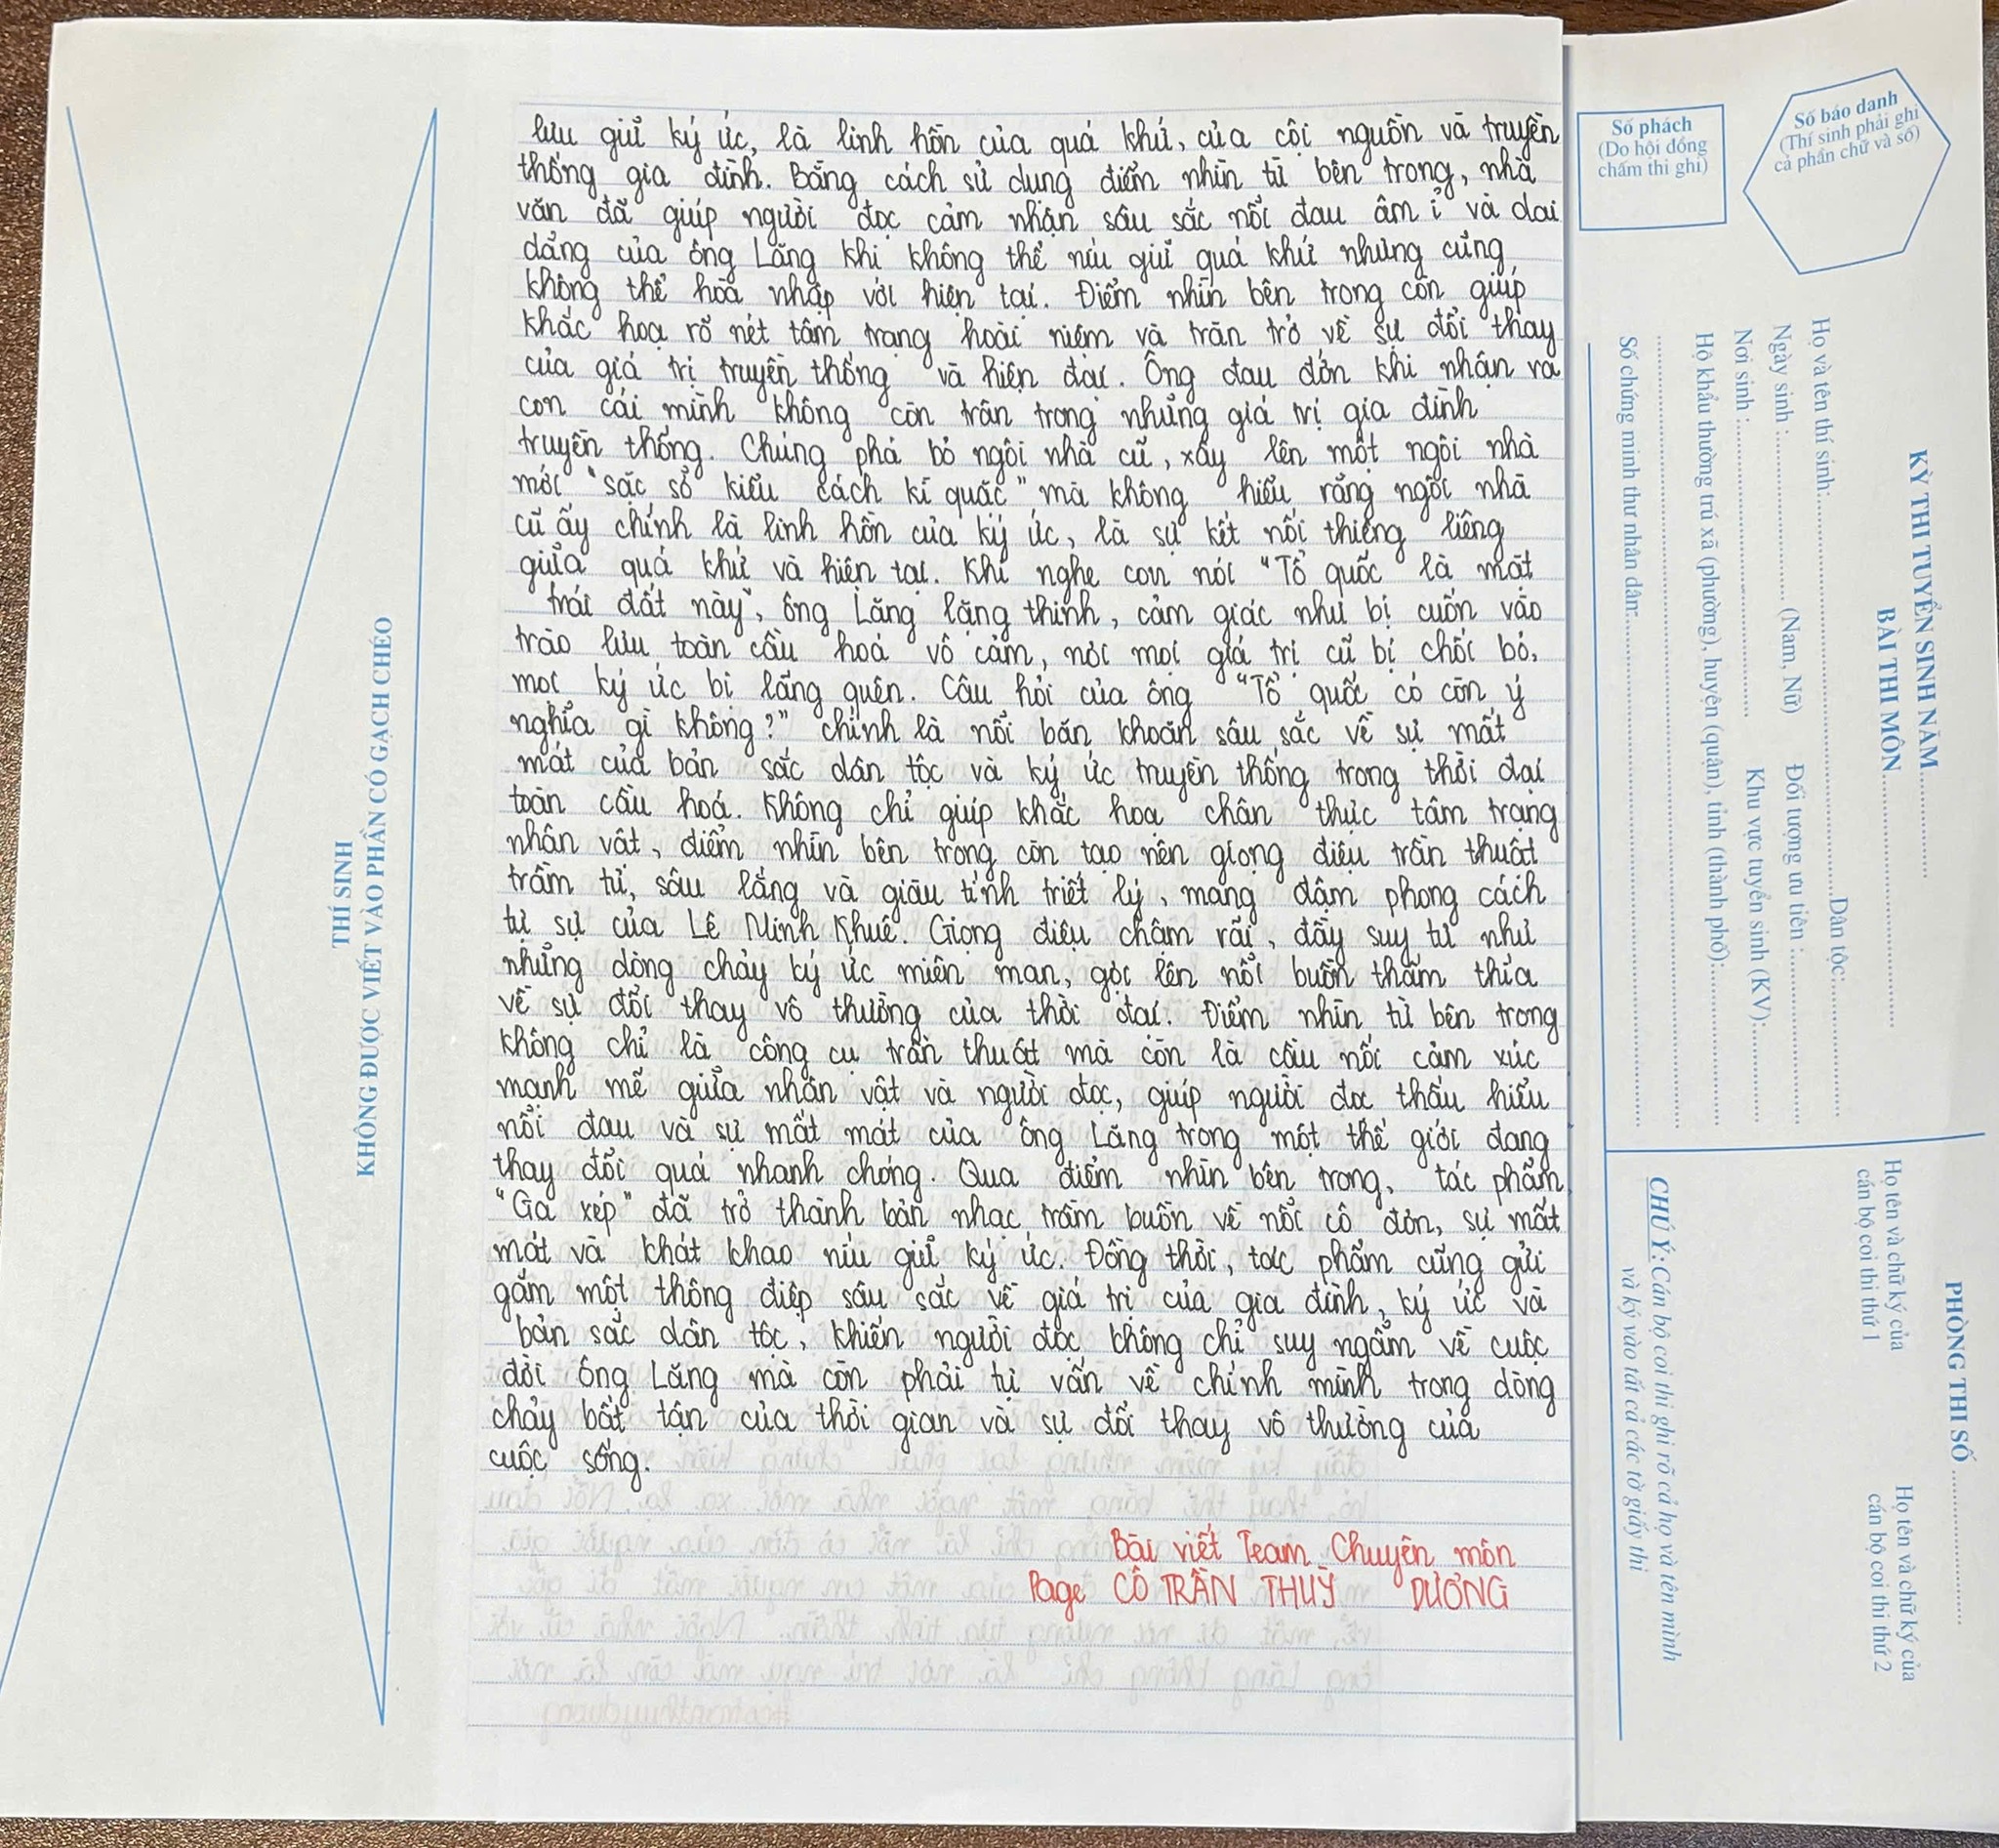 lưu giữ ký ức, là linh hồn của quá khứ, của cội nguồn và truyền
thống gia đình. Bằng cách sử dụng điểm nhìn từ bên trong, nhà
văn đã giúp người đọc cảm nhận sâu sắc nỗi đau âm ỉ và dai
dẳng của ông Lăng khi không thể níu giữ quá khứ nhưng cũng
không thể hòa nhập với hiện tại. Điểm nhìn bên trong còn giúp
khắc hoạ rõ nét tâm trạng hoài niệm và trăn trở về sự đổi thay
của giá trị truyền thống và hiện đại. Ông đau đớn khi nhận ra
con cái mình không còn trân trọng những giá trị gia đình
truyền thống. Chúng phá bỏ ngôi nhà cũ, xây lên một ngôi nhà
mới "sặc sỡ kiểu cách kì quặc" mà không hiểu rằng ngôi nhà
cũ ấy chính là linh hồn của ký ức, là sự kết nối thiêng liêng
giữa quá khứ và hiện tại. Khi nghe con nói "Tổ quốc là mặt
trái đất này", ông Lăng lặng thinh, cảm giác như bị cuốn vào
trào lưu toàn cầu hoá vô cảm, nơi mọi giá trị cũ bị chối bỏ,
mọi ký ức bị lãng quên. Câu hỏi của ông "Tổ quốc có còn ý
nghĩa gì không?" chính là nỗi băn khoăn sâu sắc về sự mất
mát của bản sắc dân tộc và ký ức truyền thống trong thời đại
toàn cầu hoá. Không chỉ giúp khắc hoạ chân thực tâm trạng
nhân vật, điểm nhìn bên trong còn tạo nên giọng điệu trần thuật
trầm tư, sâu lắng và giàu tính triết lý, mang đậm phong cách
tự sự của Lê Minh Khuê. Giọng điệu chậm rãi, đầy suy tư như
những dòng chảy ký ức miên man, gợi lên nỗi buồn thấm thía
về sự đổi thay vô thường của thời đại. Điểm nhìn từ bên trong
không chỉ là công cụ trần thuật mà còn là cầu nối cảm xúc
mạnh mẽ giữa nhân vật và người đọc, giúp người đọc thấu hiểu
nỗi đau và sự mất mát của ông Lăng trong một thế giới đang
thay đổi quá nhanh chóng. Qua điểm nhìn bên trong, tác phẩm
"Ga xép" đã trở thành bản nhạc trầm buồn về nỗi cô đơn, sự mất
mát và khát khao níu giữ ký ức. Đồng thời, tác phẩm cũng gửi
gắm một thông điệp sâu sắc về giá trị của gia đình, ký ức và
bản sắc dân tộc, khiến người đọc không chỉ suy ngẫm về cuộc
đời ông Lăng mà còn phải tự vấn về chính mình trong dòng
chảy bất tận của thời gian và sự đổi thay vô thường của
cuộc sống.
Bài viết Team Chuyên môn
Page CÔ TRẦN THUỲ DƯƠNG
THÍ SINH
KHÔNG ĐƯỢC VIẾT VÀO PHẦN CÓ GẠCH CHÉO
Số phách
(Do hội đồng
chấm thi ghi)
Số báo danh
(Thí sinh phải ghi
cả phần chữ và số)
KỲ THI TUYỂN SINH NĂM
BÀI THI MÔN
Họ và tên thí sinh: Dân tộc:
Ngày sinh : (Nam, Nữ) Đối tượng ưu tiên :
Nơi sinh : Khu vực tuyển sinh (KV):
Hộ khẩu thường trú xã (phường), huyện (quận), tỉnh (thành phố):
Số chứng minh thư nhân dân:
PHÒNG THI SỐ
Họ tên và chữ ký của
cán bộ coi thi thứ 1
Họ tên và chữ ký của
cán bộ coi thi thứ 2
CHÚ Ý: Cán bộ coi thi ghi rõ cả họ và tên mình
và ký vào tất cả các tờ giấy thi